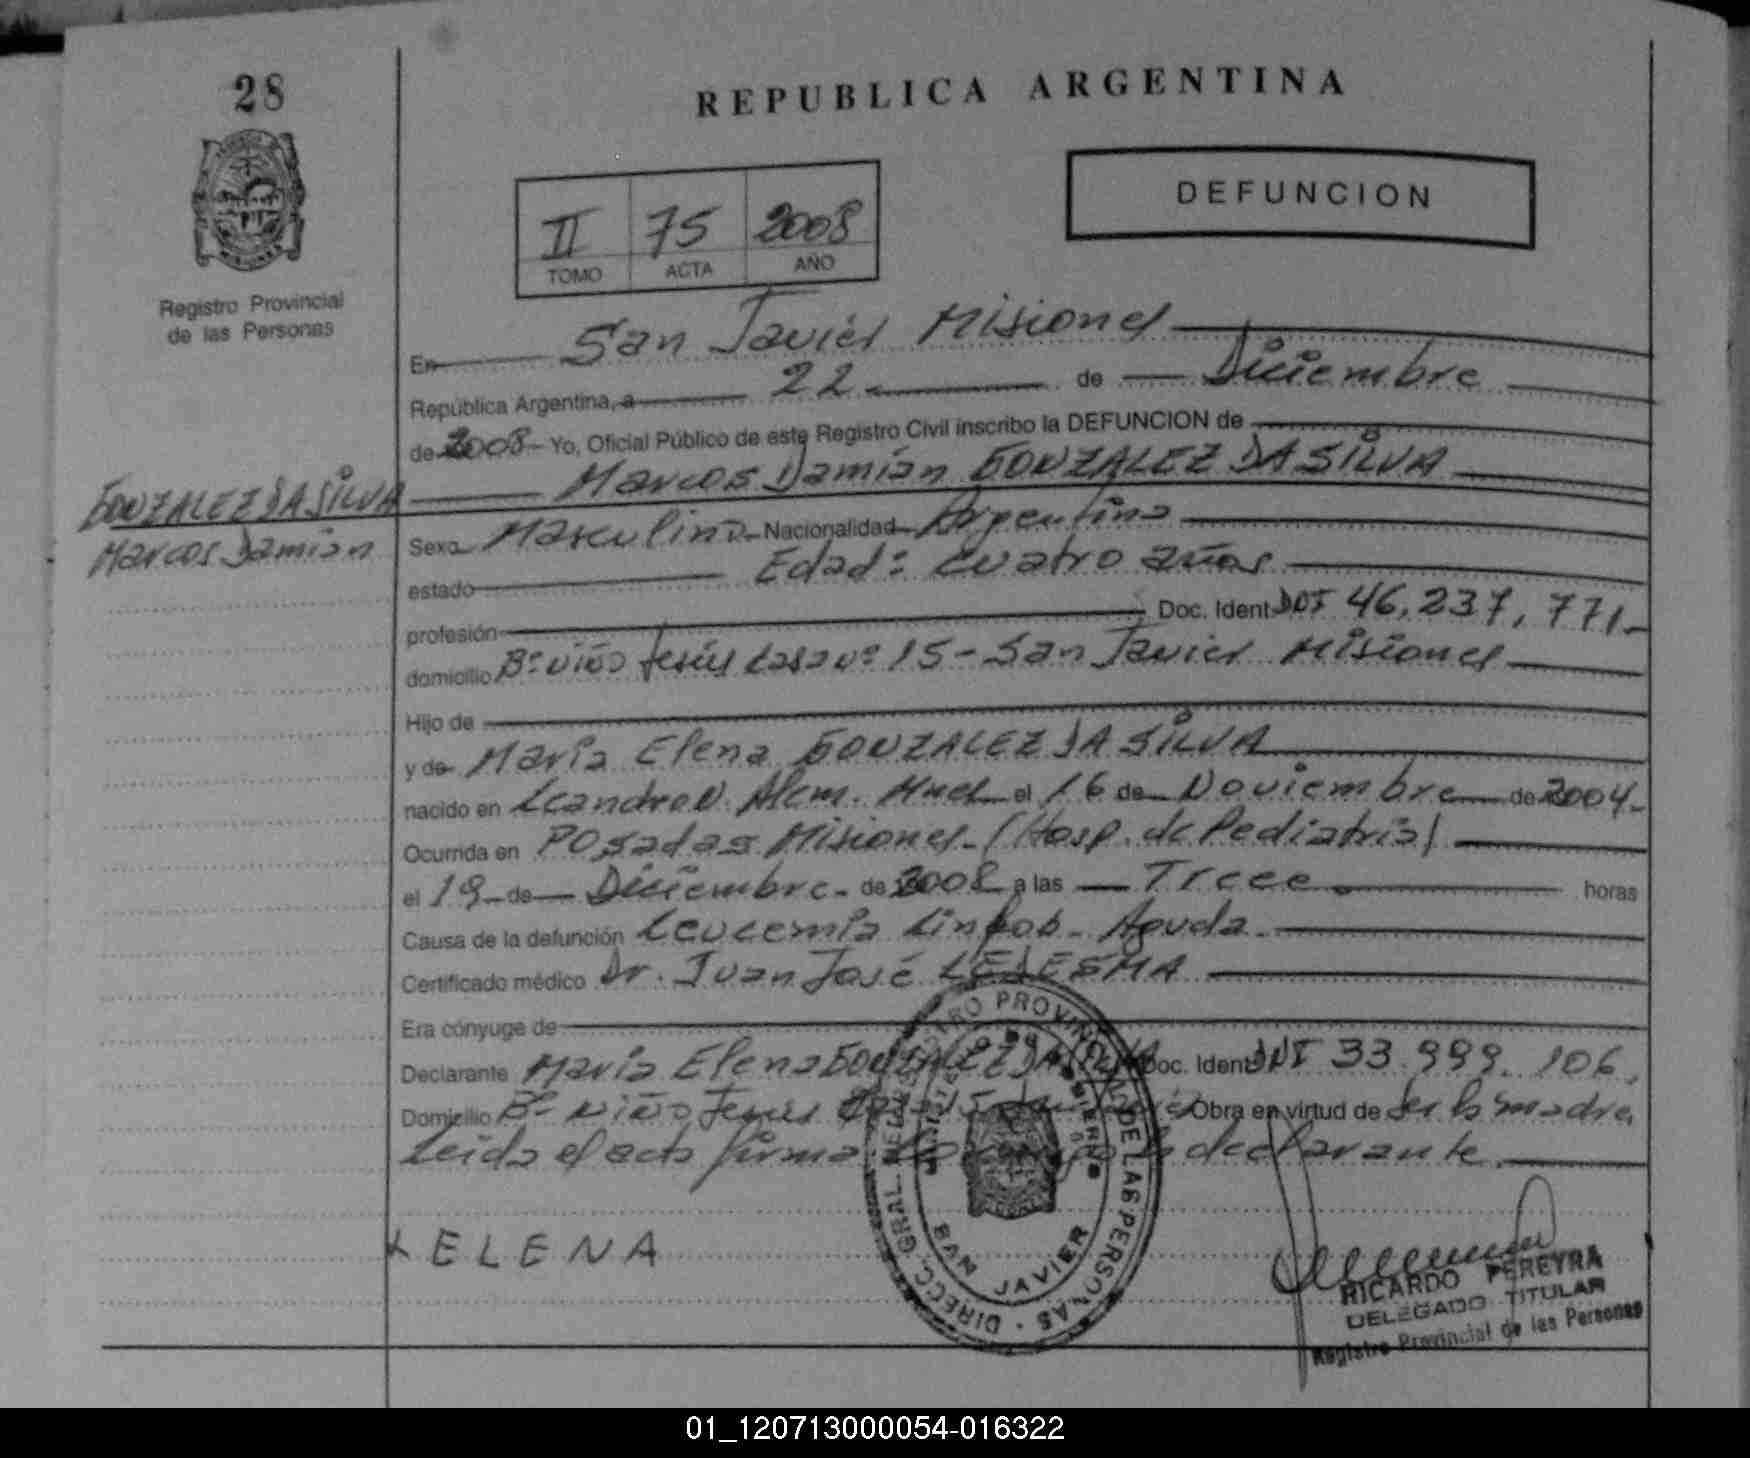 28
REPUBLICA ARGENTINA
DEFUNCION
II 75 2008
TOMO ACTA AÑO
Registro Provincial
de las Personas
En San Javier Misiones
República Argentina, a 22 de Diciembre
de 2008 Yo, Oficial Público de este Registro Civil inscribo la DEFUNCION de
Marcos Damián GONZALEZ DA SILVA
GONZALEZ DA SILVA
Marcos Damián
Sexo Masculino Nacionalidad Argentina
estado Edad: cuatro años
profesión Doc. Ident DNI 46,237,771
domicilio Bº Niño Jesús Casa nº 15 - San Javier Misiones
Hijo de
y de María Elena GONZALEZ DA SILVA
nacido en Leandro N. Alem. Mnes el 16 de Noviembre de 2004
Ocurrida en Posadas Misiones (Hosp. de Pediatría)
el 19 de Diciembre de 2008 a las Trece horas
Causa de la defunción Leucemia Linfob. Aguda
Certificado médico Dr. Juan José LEDESMA
Era cónyuge de
Declarante María Elena GONZALEZ DA SILVA Doc. Ident DNI 33.999.106
Domicilio Bº Niño Jesús 15 Obra en virtud de ser la madre
Leida el acta firma la declarante
ELENA
DIRECC. GRAL. DEL REGISTRO PROVINCIAL DE LAS PERSONAS
SAN JAVIER
RICARDO PEREYRA
DELEGADO TITULAR
Registro Provincial de las Personas
01_120713000054-016322